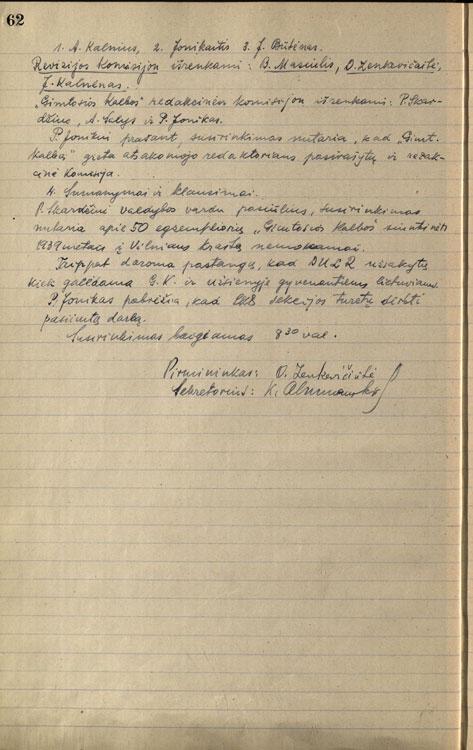 62
1. A. Kalnius, 2. Jonikaitis 3. J. Būtėnas.
Revizijos komisijon išrenkami: B. Masiulis, O. Zenkevičaitė,
J. Kalnėnas.
„Gimtosios Kalbos" redakcinėn komisijon išrenkami: P. Skar-
džius, A. Salys ir P. Jonikas.
P. Jonikui prašant, susirinkimas nutaria, kad „Gimt.
Kalbą" greta atsakomojo redaktoriaus pasirašytų ir redak-
cinė komisija.
4. Sumanymai ir klausimai.
P. Skardžiui valdybos vardu pasiūlius, susirinkimas
nutaria apie 50 egzempliorių „Gimtosios Kalbos" siuntinėti
1939 metais į Vilniaus kraštą nemokamai.
Taippat daroma pastangų, kad DULR užsakytų
kiek galėdama G. K. ir užsienyje gyvenantiems lietuviams.
P. Jonikas pabrėžia, kad sekcijos turėtų dirbti
pasiimtą darbą.
Susirinkimas baigiamas 8 30 val.
Pirmininkas: O. Zenkevičiūtė
Sekretorius: K.